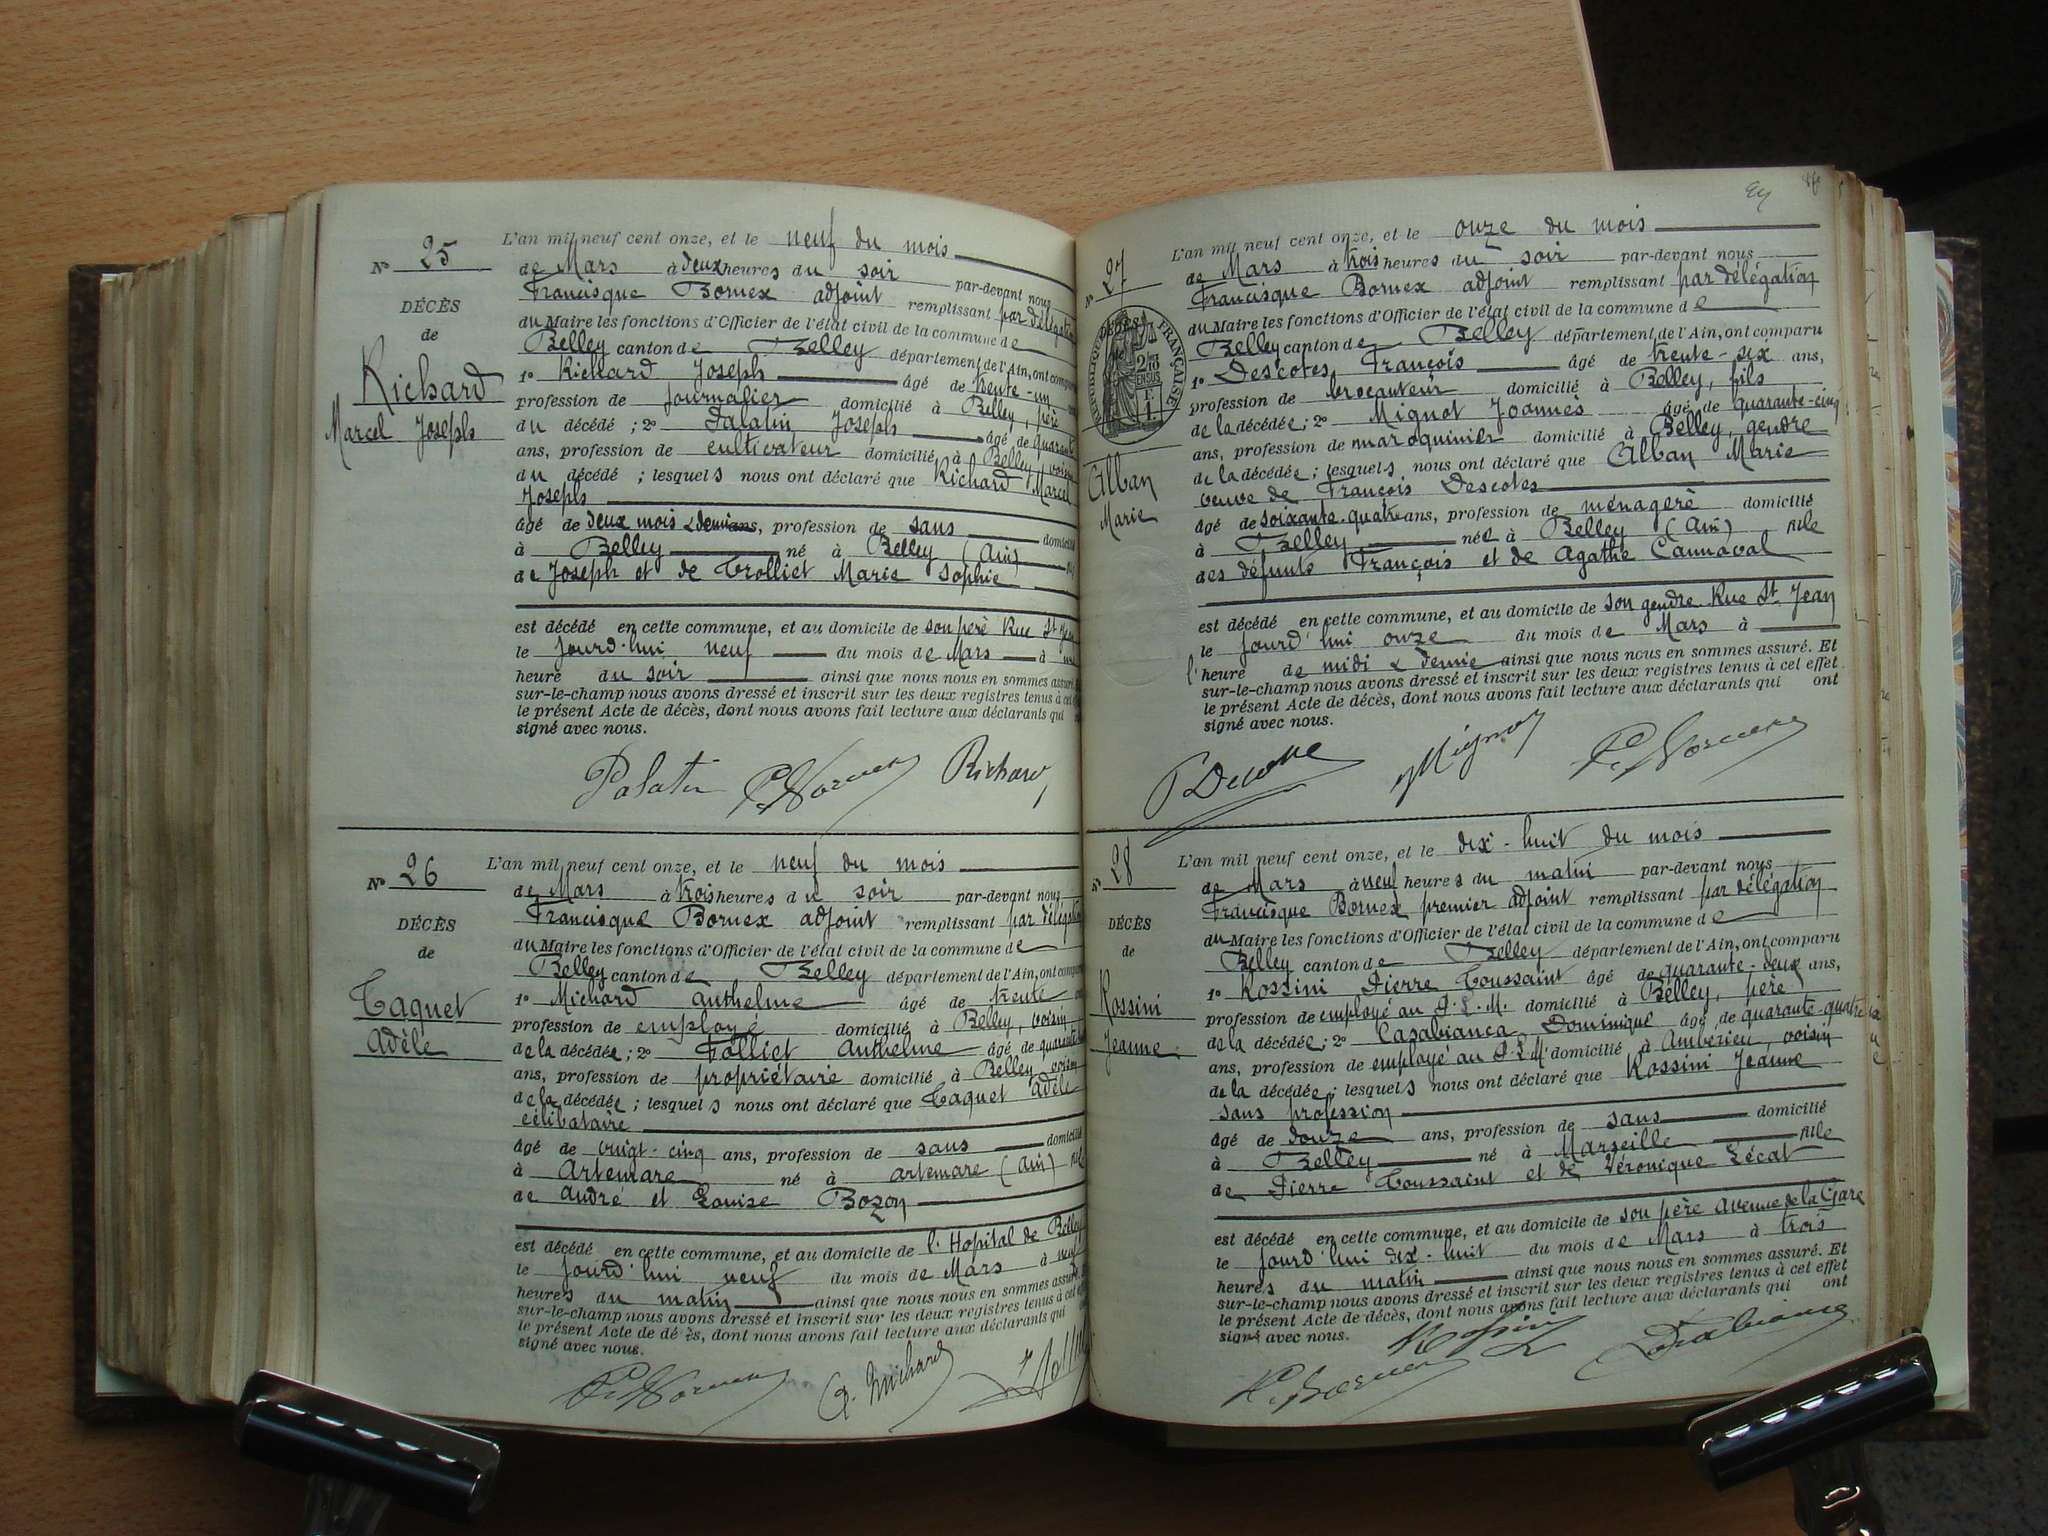 N° 25
DÉCÈS
de
Richard
Marcel Joseph
L'an mil neuf cent onze, et le neuf du mois
de Mars à deux heures du soir par-devant nous
Francisque Bornex adjoint remplissant par délégation
du Maire les fonctions d'Officier de l'état civil de la commune de
Belley canton de Belley département de l'Ain, ont comparu
1° Richard Joseph âgé de trente-un
profession de journalier domicilié à Belley, père
du décédé ; 2° Palatin Joseph âgé de quarante
ans, profession de cultivateur domicilié à Belley, voisin
du décédé ; lesquels nous ont déclaré que Richard Marcel
Joseph
âgé de deux mois & demi ans, profession de sans domicilié
à Belley né à Belley (Ain)
de Joseph et de Trolliet Marie Sophie
est décédé en cette commune, et au domicile de son père Rue St Jean
le jourd'hui neuf du mois de Mars à une
heure du soir ainsi que nous nous en sommes assuré.
sur-le-champ nous avons dressé et inscrit sur les deux registres tenus à cet
le présent Acte de décès, dont nous avons fait lecture aux déclarants qui
signé avec nous.
Palatin F. Bornex Richard
N° 26
DÉCÈS
de
Taquet
Adèle
L'an mil neuf cent onze, et le neuf du mois
de Mars à trois heures du soir par-devant nous
Francisque Bornex adjoint remplissant par délégation
du Maire les fonctions d'Officier de l'état civil de la commune de
Belley canton de Belley département de l'Ain, ont comparu
1° Michard Anthelme âgé de trente
profession de employé domicilié à Belley, voisin
de la décédée ; 2° Folliet Anthelme âgé de quarante
ans, profession de propriétaire domicilié à Belley voisin
de la décédée ; lesquels nous ont déclaré que Taquet Adèle
célibataire
âgé de vingt-cinq ans, profession de sans domicilié
à Artemare né à Artemare (Ain)
de André et Louise Bozon
est décédé en cette commune, et au domicile de l'Hopital de Belley
le jourd'hui neuf du mois de Mars à neuf
heures du matin ainsi que nous nous en sommes assuré.
sur-le-champ nous avons dressé et inscrit sur les deux registres tenus à cet
le présent Acte de dé ès, dont nous avons fait lecture aux déclarants qui
signé avec nous.
F. Bornex A. Michard
N° 27
DÉCÈS
RÉPUBLIQUE FRANÇAISE
2/10
EN SUS
Alban
Marie
L'an mil neuf cent onze, et le onze du mois
de Mars à trois heures du soir par-devant nous
Francisque Bornex adjoint remplissant par délégation
du Maire les fonctions d'Officier de l'état civil de la commune de
Belley canton de Belley département de l'Ain, ont comparu
1° Descotes François âgé de trente-six ans,
profession de brocanteur domicilié à Belley, fils
de la décédée ; 2° Mignot Joannès âgé de quarante-cinq
ans, profession de maroquinier domicilié à Belley, gendre
de la décédée ; lesquels nous ont déclaré que Alban Marie
veuve de François Descotes
âgé de soixante-quatre ans, profession de ménagère domicilié
à Belley née à Belley (Ain) fille
des défunts François et de Agathe Cannaval
est décédé en cette commune, et au domicile de son gendre Rue St Jean
le jourd'hui onze du mois de Mars à
l'heure de midi & demie ainsi que nous nous en sommes assuré. Et
sur-le-champ nous avons dressé et inscrit sur les deux registres tenus à cet effet
le présent Acte de décès, dont nous avons fait lecture aux déclarants qui ont
signé avec nous.
Mignot F. Bornex
N° 28
DÉCÈS
de
Rossini
Jeanne
L'an mil neuf cent onze, et le dix-huit du mois
de Mars à neuf heures du matin par-devant nous
Francisque Bornex premier adjoint remplissant par délégation
du Maire les fonctions d'Officier de l'état civil de la commune de
Belley canton de Belley département de l'Ain, ont comparu
1° Rossini Pierre Toussaint âgé de quarante-deux ans,
profession de employé au P.L.M. domicilié à Belley, père
de la décédée ; 2° Casabianca Dominique âgé de quarante-quatre
ans, profession de employé au P.L.M. domicilié à Ambérieu, voisin
de la décédée ; lesquels nous ont déclaré que Rossini Jeanne
sans profession
âgé de douze ans, profession de sans domicilié
à Belley né à Marseille fille
de Pierre Toussaint et de Véronique Lécat
est décédé en cette commune, et au domicile de son père Avenue de la Gare
le jourd'hui dix-huit du mois de Mars à trois
heures du matin ainsi que nous nous en sommes assuré. Et
sur-le-champ nous avons dressé et inscrit sur les deux registres tenus à cet effet
le présent Acte de décès, dont nous avons fait lecture aux déclarants qui ont
signé avec nous.
Rossini
F. Bornex Casabianca